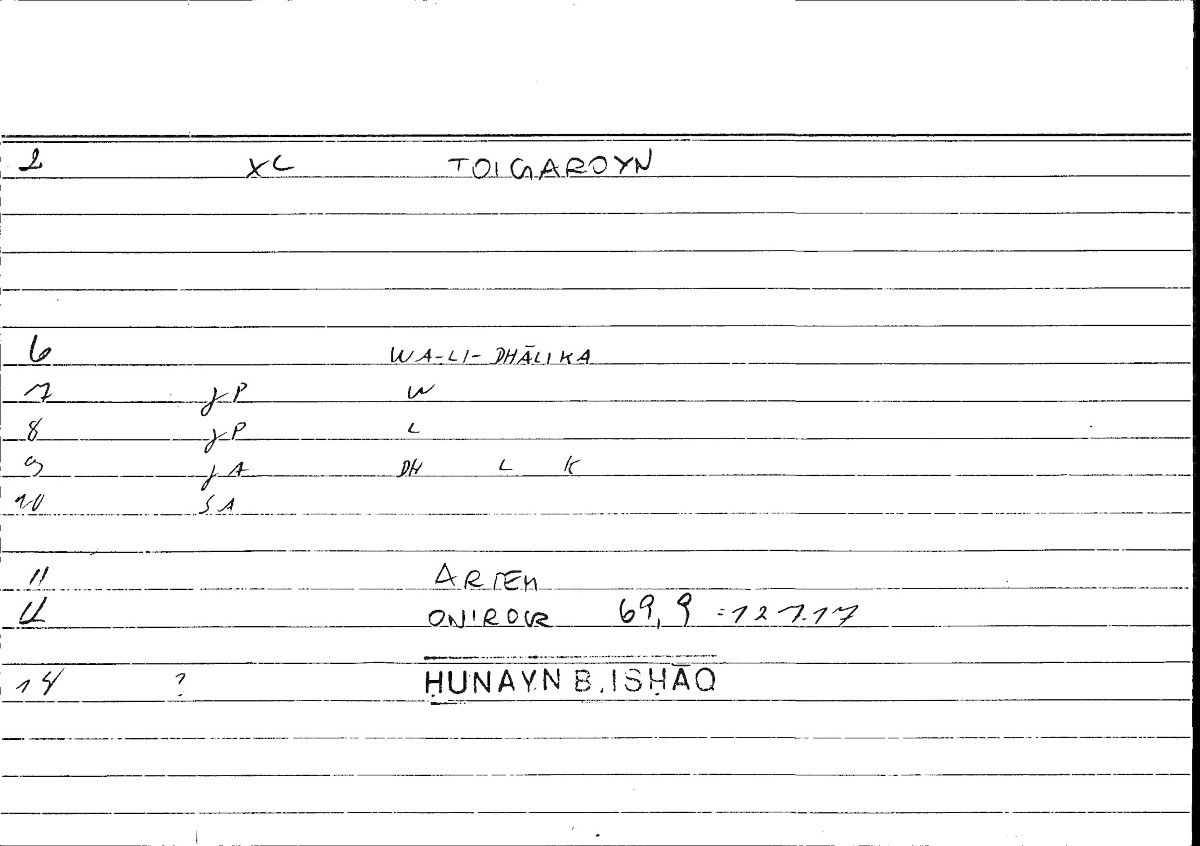 2 XL TOIGAROYN
6 WA-LI-DHĀLIKA
7 JP W
8 JP L
9 JA DH L K
10 SA
11 ARTEM
12 ONIROCR 69,9 = 127.17
14 ? ḤUNAYN B. ISḤĀQ